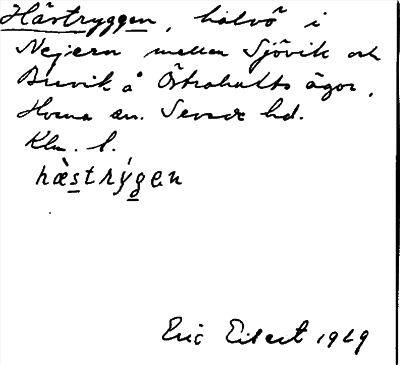 Hästryggen, halvö i
Nejern mellan Sjövik och
Buvik å Östrahults ägor,
Hvena sn. Sevede hd.
Klm. l.
hæ̀strýgen
Eric Elfert 1969